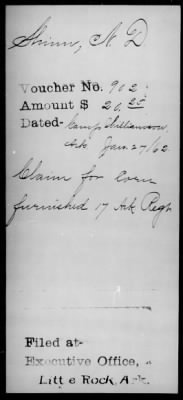 Shinn, A. D.
Voucher No. 902
Amount $ 20.25
Dated- Camp Williamson
Ark Jan. 27/62
Claim for Corn
furnished 17 Ark Regt
Filed at-
Executive Office,
Little Rock, Ark.